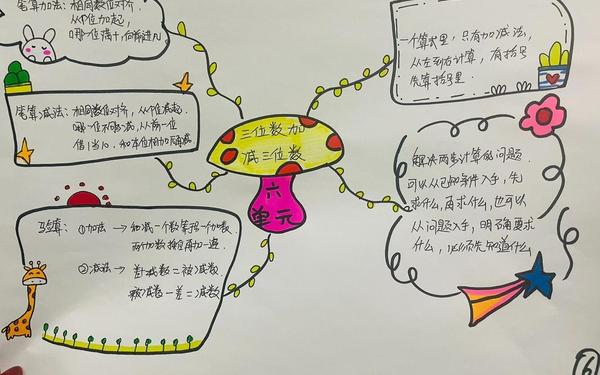 笔算加法：相同数位对齐，
从个位加起，
哪一位满十，向前进几
笔算减法：相同数位对齐，从个位减起
哪一位不够减，从前一位
借1当10，和本位相加再减
验算：①加法 → 和减一个数等于另一个加数
两个加数换位再加一遍．
②减法 → 差+减数=被减数
被减数－差=减数
三位数加
减三位数
六
单元
一个算式里，只有加减法，
从左到右计算，有括号
先算括号里．
解决两步计算的问题．
可以从已知条件入手，先
求什么，再求什么，也可以
从问题入手，明确要求
什么，必须先知道什么
6